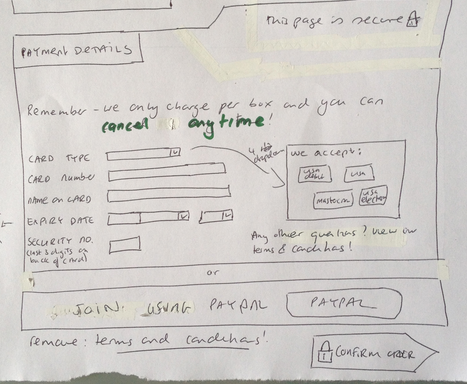 This page is secure
PAYMENT DETAILS
Remember - we only charge per box and you can
cancel anytime!
CARD TYPE
CARD number
name on CARD
EXPIRY DATE
SECURITY NO.
(last 3 digits on
back of card)
we accept:
visa
debit
visa
mastercard
visa
electron
Any other questions? view our
terms & conditions!
or
JOIN USING PAYPAL
PAYPAL
remove: terms and conditions!
CONFIRM ORDER